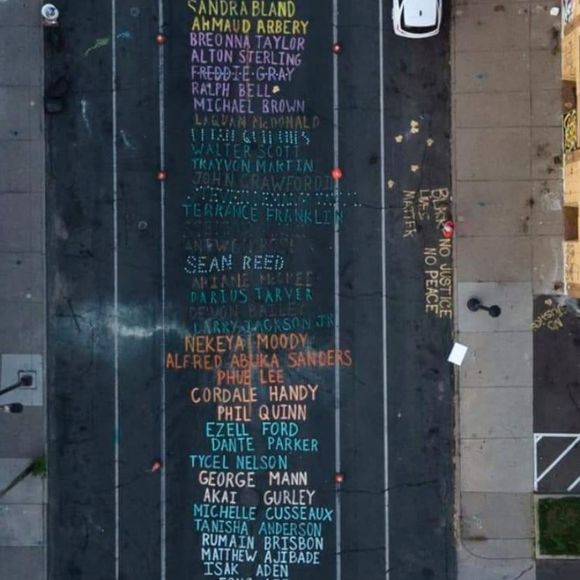 SANDRA BLAND
AHMAUD ARBERY
BREONNA TAYLOR
ALTON STERLING
FREDDIE GRAY
RALPH BELL
MICHAEL BROWN
LAQUAN McDONALD
WALTER SCOTT
TRAYVON MARTIN
JOHN CRAWFORD
TERRANCE FRANKLIN
ANTWON ROSE
SEAN REED
ARIANE McCREE
DARIUS TARVER
DEVON BAILEY
LARRY JACKSON JR
NEKEYA MOODY
ALFRED ABUKA SANDERS
PHUE LEE
CORDALE HANDY
PHIL QUINN
EZELL FORD
DANTE PARKER
TYCEL NELSON
GEORGE MANN
AKAI GURLEY
MICHELLE CUSSEAUX
TANISHA ANDERSON
RUMAIN BRISBON
MATTHEW AJIBADE
ISAK ADEN
BLACK
LIVES
MATTER
NO JUSTICE
NO PEACE